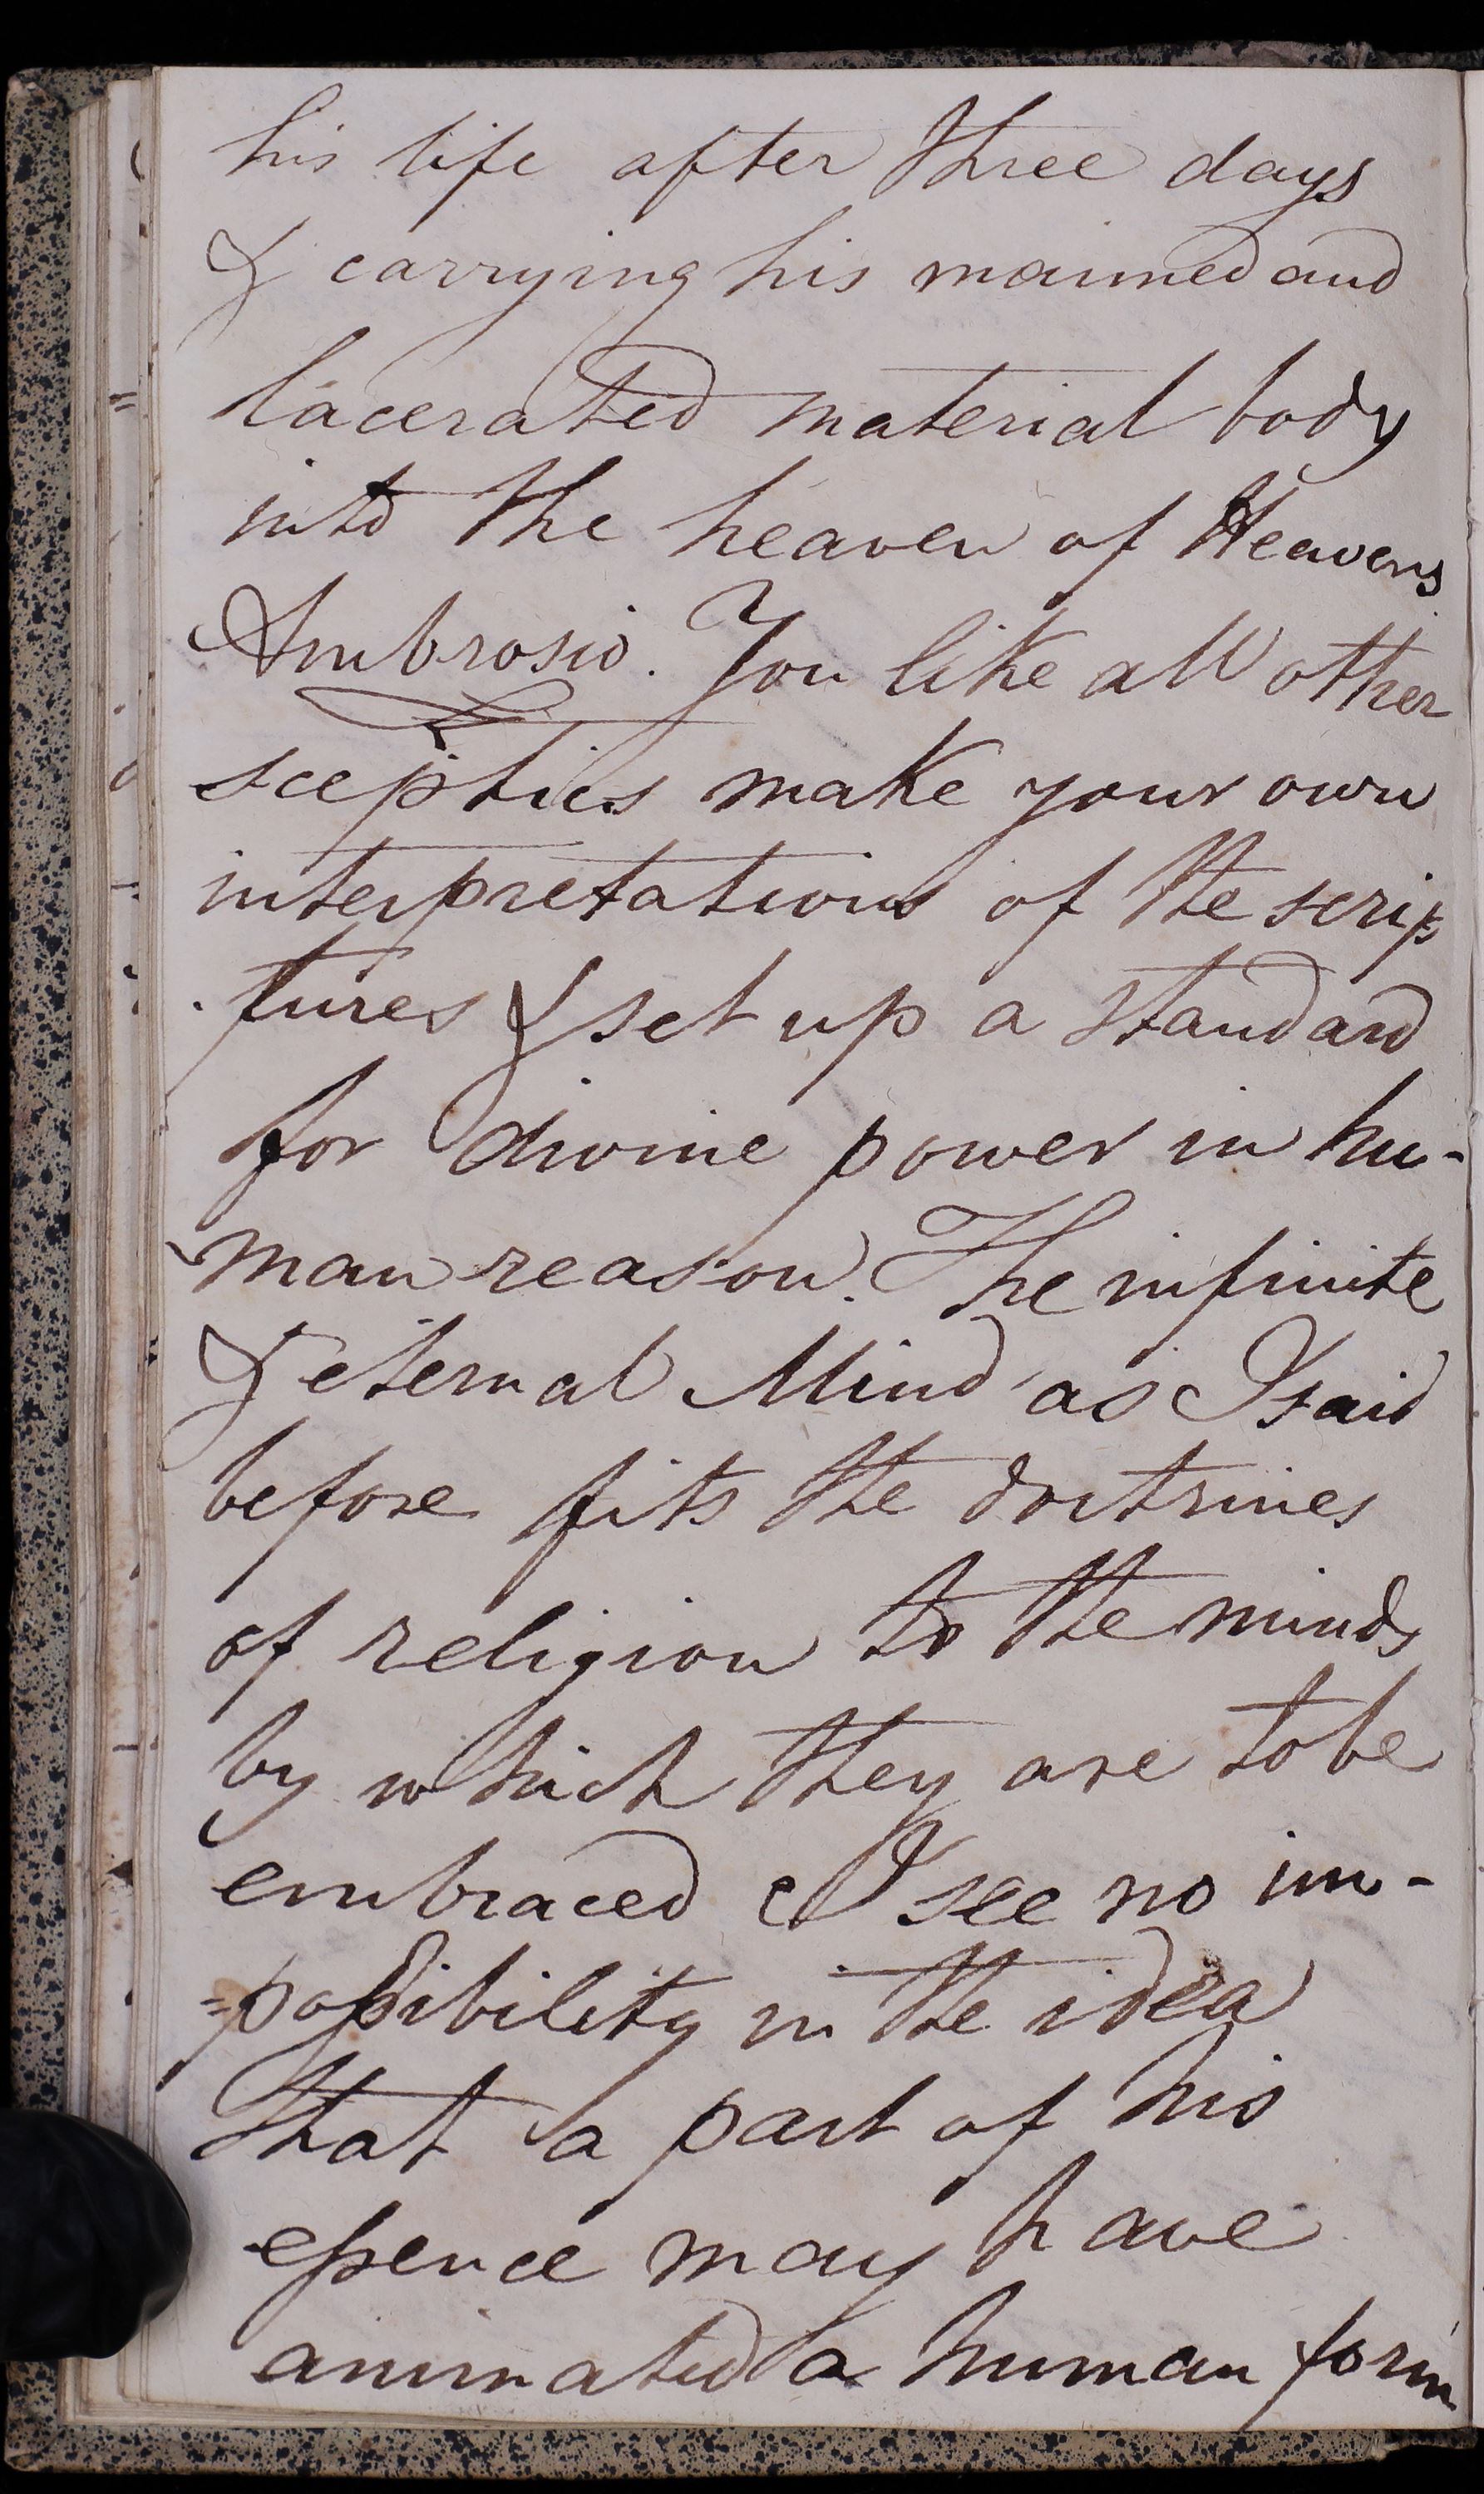 his life after three days
& carrying his maimed and
lacerated material body
into the heaven of Heavens
Ambrosio. You like all other
sceptics make your own
interpretations of the scrip
tures & set up a standard
for divine power in hu-
man reason. The infinite
& eternal Mind as I said
before fits the doctrines
of religion to the minds
by which they are to be
embraced I see no im-
=possibility in the idea
that a part of his
essence may have
animated a human form